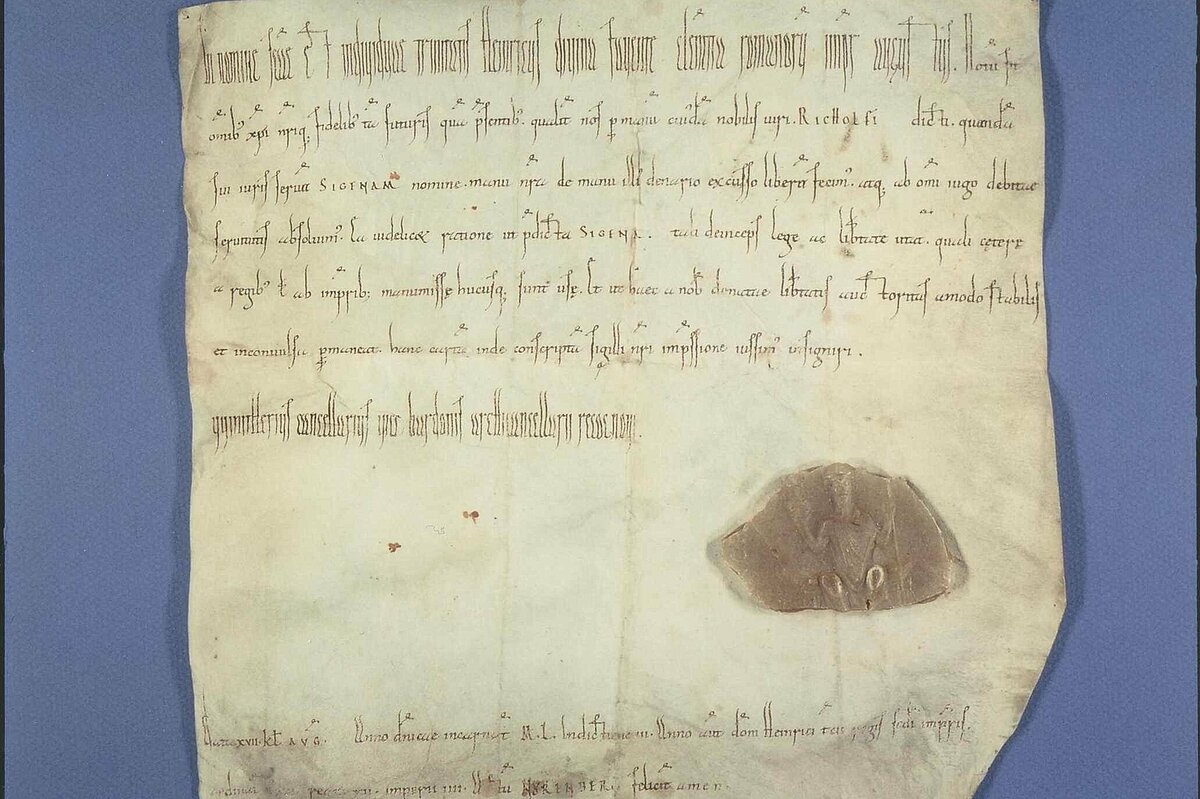 In nomine scae et individuae trinitatis Heinricus divina favente clementia romanorũ impr augus tus. Notũ sit
omib' xpi nriq; fidelib' tã futuris quã psentib'. qualit nos p manũ cuiusdã nobilis viri. RICHOLFI dicti. quandã
sui iuris servã SIGENAM nomine. manu nra de manu illi' denario excusso liberã fecim'. atq; ab omi iugo debitae
servitutis absolvim'. Ea videlicet ratione ut pdicta SIGENA. tali deinceps lege ac libtate utat. quali cęterę
a regib' t ab impratorib; manumissę hucusq; sunt usę. Et ut haec a nob donatae libtatis auctoritas amodo stabilis
et inconvulsa pmaneat. hanc cartã inde conscriptã sigilli nri impssione iussim' insigniri.
Winitherius cancellarius vice bardonis archicancellarii recognovi.
Data XVII. kl AUG. Anno dnicae incarnat M.L. Indictione III. Anno aut dom Heinrici tercii regis scdi impris.
XII. imperii IIII. NORENBERC feliciť amen.